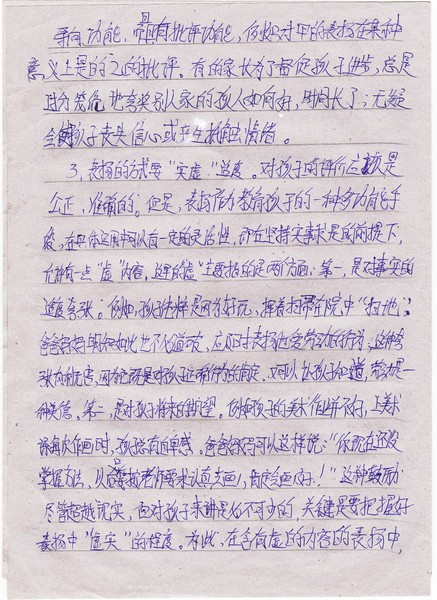 导向功能,常具有批评功能,例如对甲的表扬在某种
意义上是对乙的批评。有的家长为了督促孩子进步,总是
地夸奖别人家的孩子如何好,时间长了,无疑
会使孩子丧失信心或产生抵触情绪。
3、表扬的方式要“实虚”适度。对孩子的评价应该是
公正、准确的。但是,表扬作为教育孩子的一种多功能手
段,在具体运用中可以有一定的灵活性,即在坚持实事求是的前提下,
允许有一点“虚”内容,这里的“虚”主要指的是两个方面:第一,是对事实的
适度夸张。例如,孩子是因为好玩,拿着扫帚在院中“扫地”,
爸爸妈妈明知如此也不道破,应及时表扬他爱劳动的行为,这种夸
张有利无害,因为它既是对孩子正确行为的肯定,又可以让孩子知道,劳动是一
种美德。第二,是对孩子将来的期望。例如孩子的美术作业不好,上美术
课每次作画时,孩子总有自卑感。爸爸妈妈可以这样说:“你现在还没
掌握方法,以后要按老师要求认真去画,肯定会画好!”这种鼓励
尽管超越现实,而对孩子来讲是必不可少的,关键是要把握好
表扬中“虚实”的程度。为此,在含有虚的内容的表扬中,